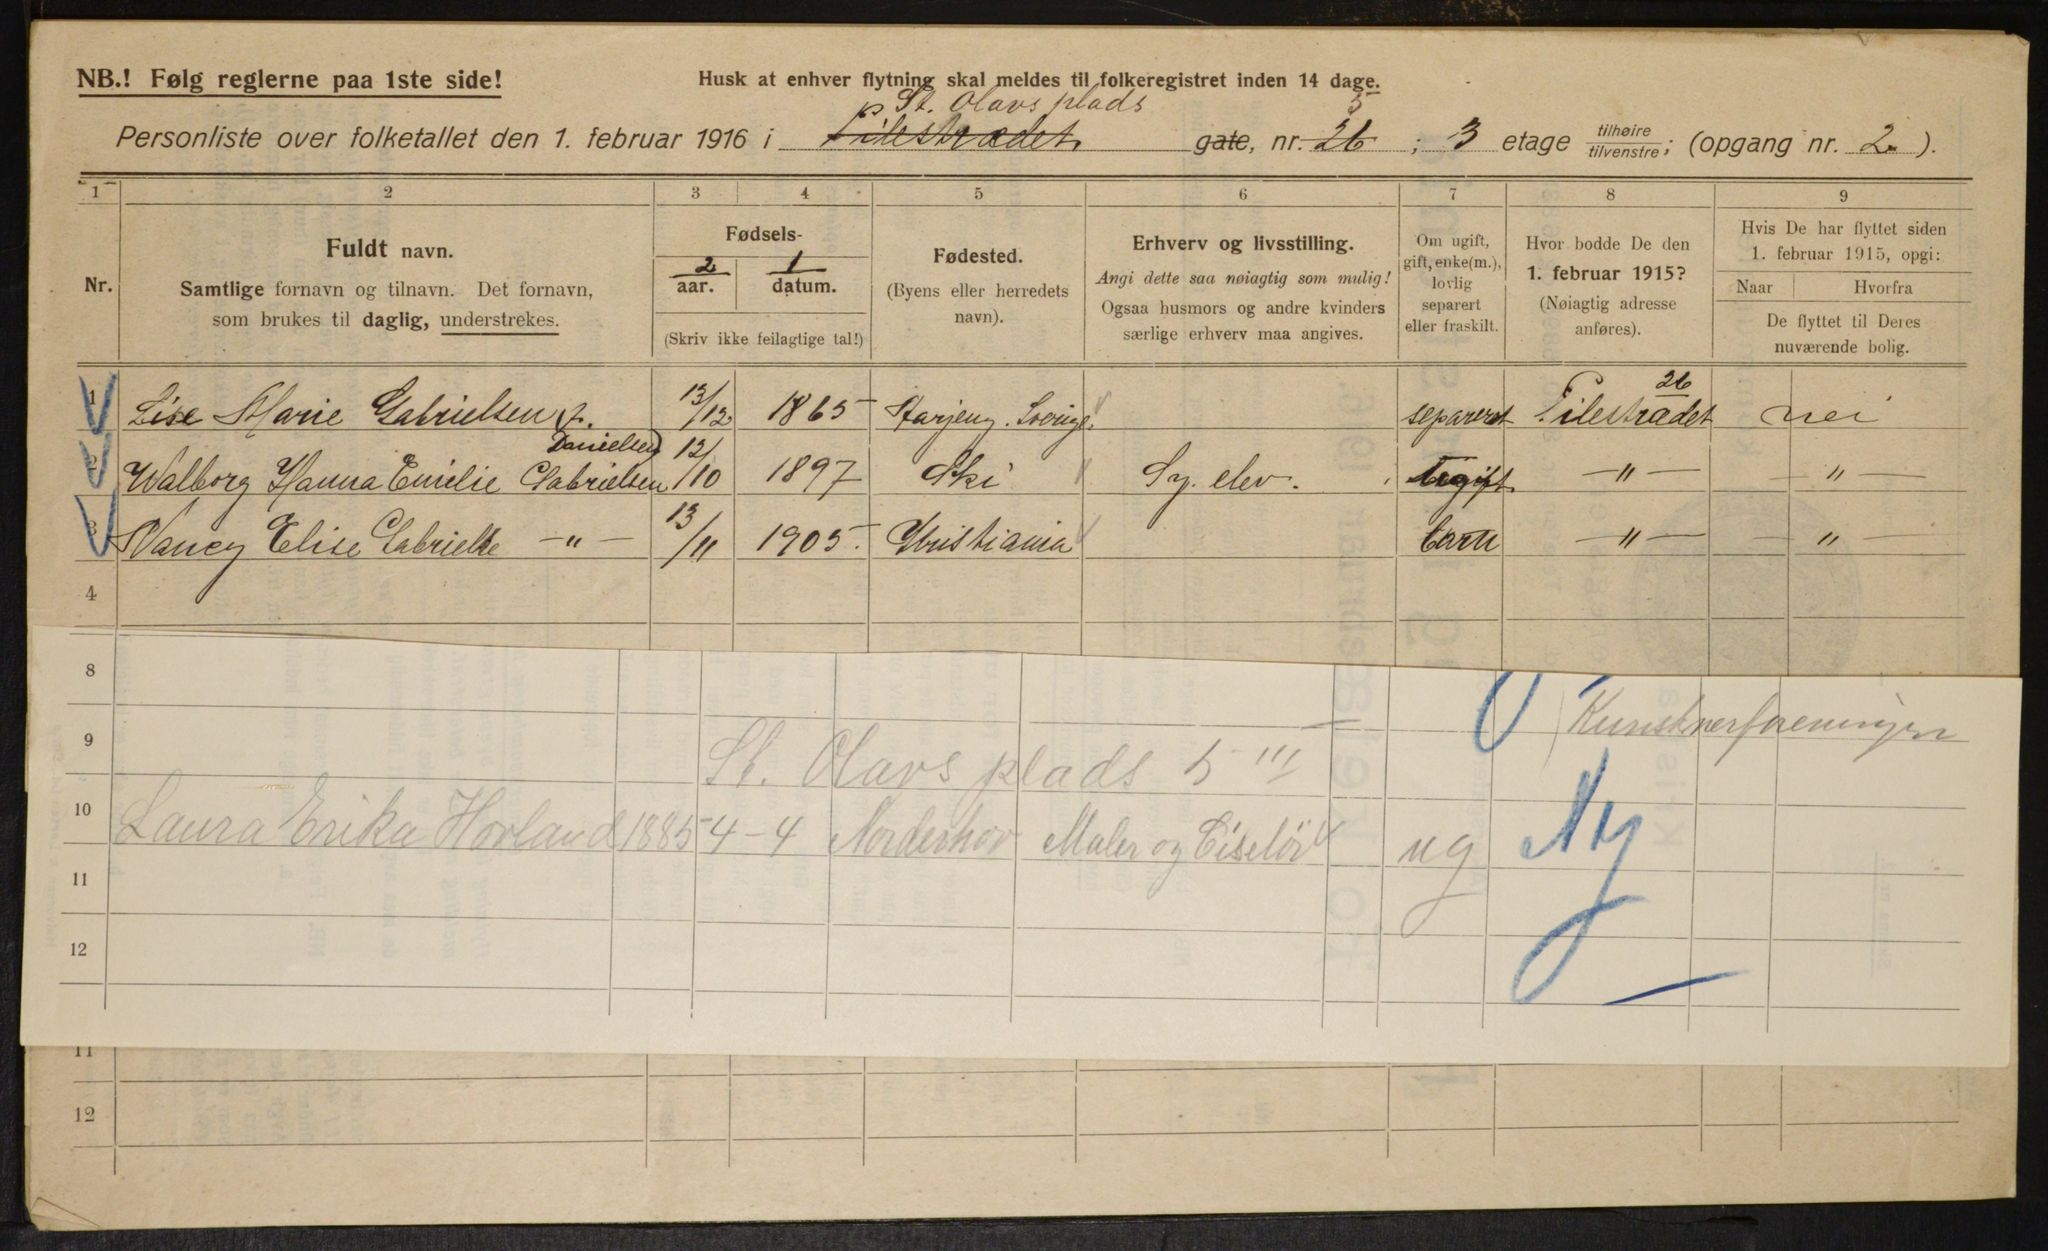 NB.! Følg reglerne paa 1ste side!
Husk at enhver flytning skal meldes til folkeregistret inden 14 dage.
St. Olavs plads 5
Personliste over folketallet den 1. februar 1916 i Pilestrædet gate, nr. 26; 3 etage tilhøire/tilvenstre; (opgang nr. 2.).
1 2 3 4 5 6 7 8 9
Nr.
Fuldt navn.
Samtlige fornavn og tilnavn. Det fornavn,
som brukes til daglig, understrekes.
Fødsels-
2 1
aar. datum.
(Skriv ikke feilagtige tal!)
Fødested.
(Byens eller herredets
navn).
Erhverv og livsstilling.
Angi dette saa nøiagtig som mulig!
Ogsaa husmors og andre kvinders
særlige erhverv maa angives.
Om ugift,
gift, enke(m.),
lovlig
separert
eller fraskilt.
Hvor bodde De den
1. februar 1915?
(Nøiagtig adresse
anføres).
Hvis De har flyttet siden
1. februar 1915, opgi:
Naar Hvorfra
De flyttet til Deres
nuværende bolig.
1 Lise Marie Gabrielsen 13/12 1865 Sverige. separeret Pilestrædet 26 nei
Danielsen
2 Walborg Hanna Emilie Gabrielsen 12/10 1897 Ski Sy. elev. Ugift —"— —"—
3 Nancy Elise Gabrielle —"— 13/11 1905. Kristiania barn —"— "
4
8 Kunstnerforeningen
9 St. Olavs plads 5 III
10 Laura Erika Hovland 1885 4-4 Norderhov Maler og Ciselör ug Ny
11
12
11
12